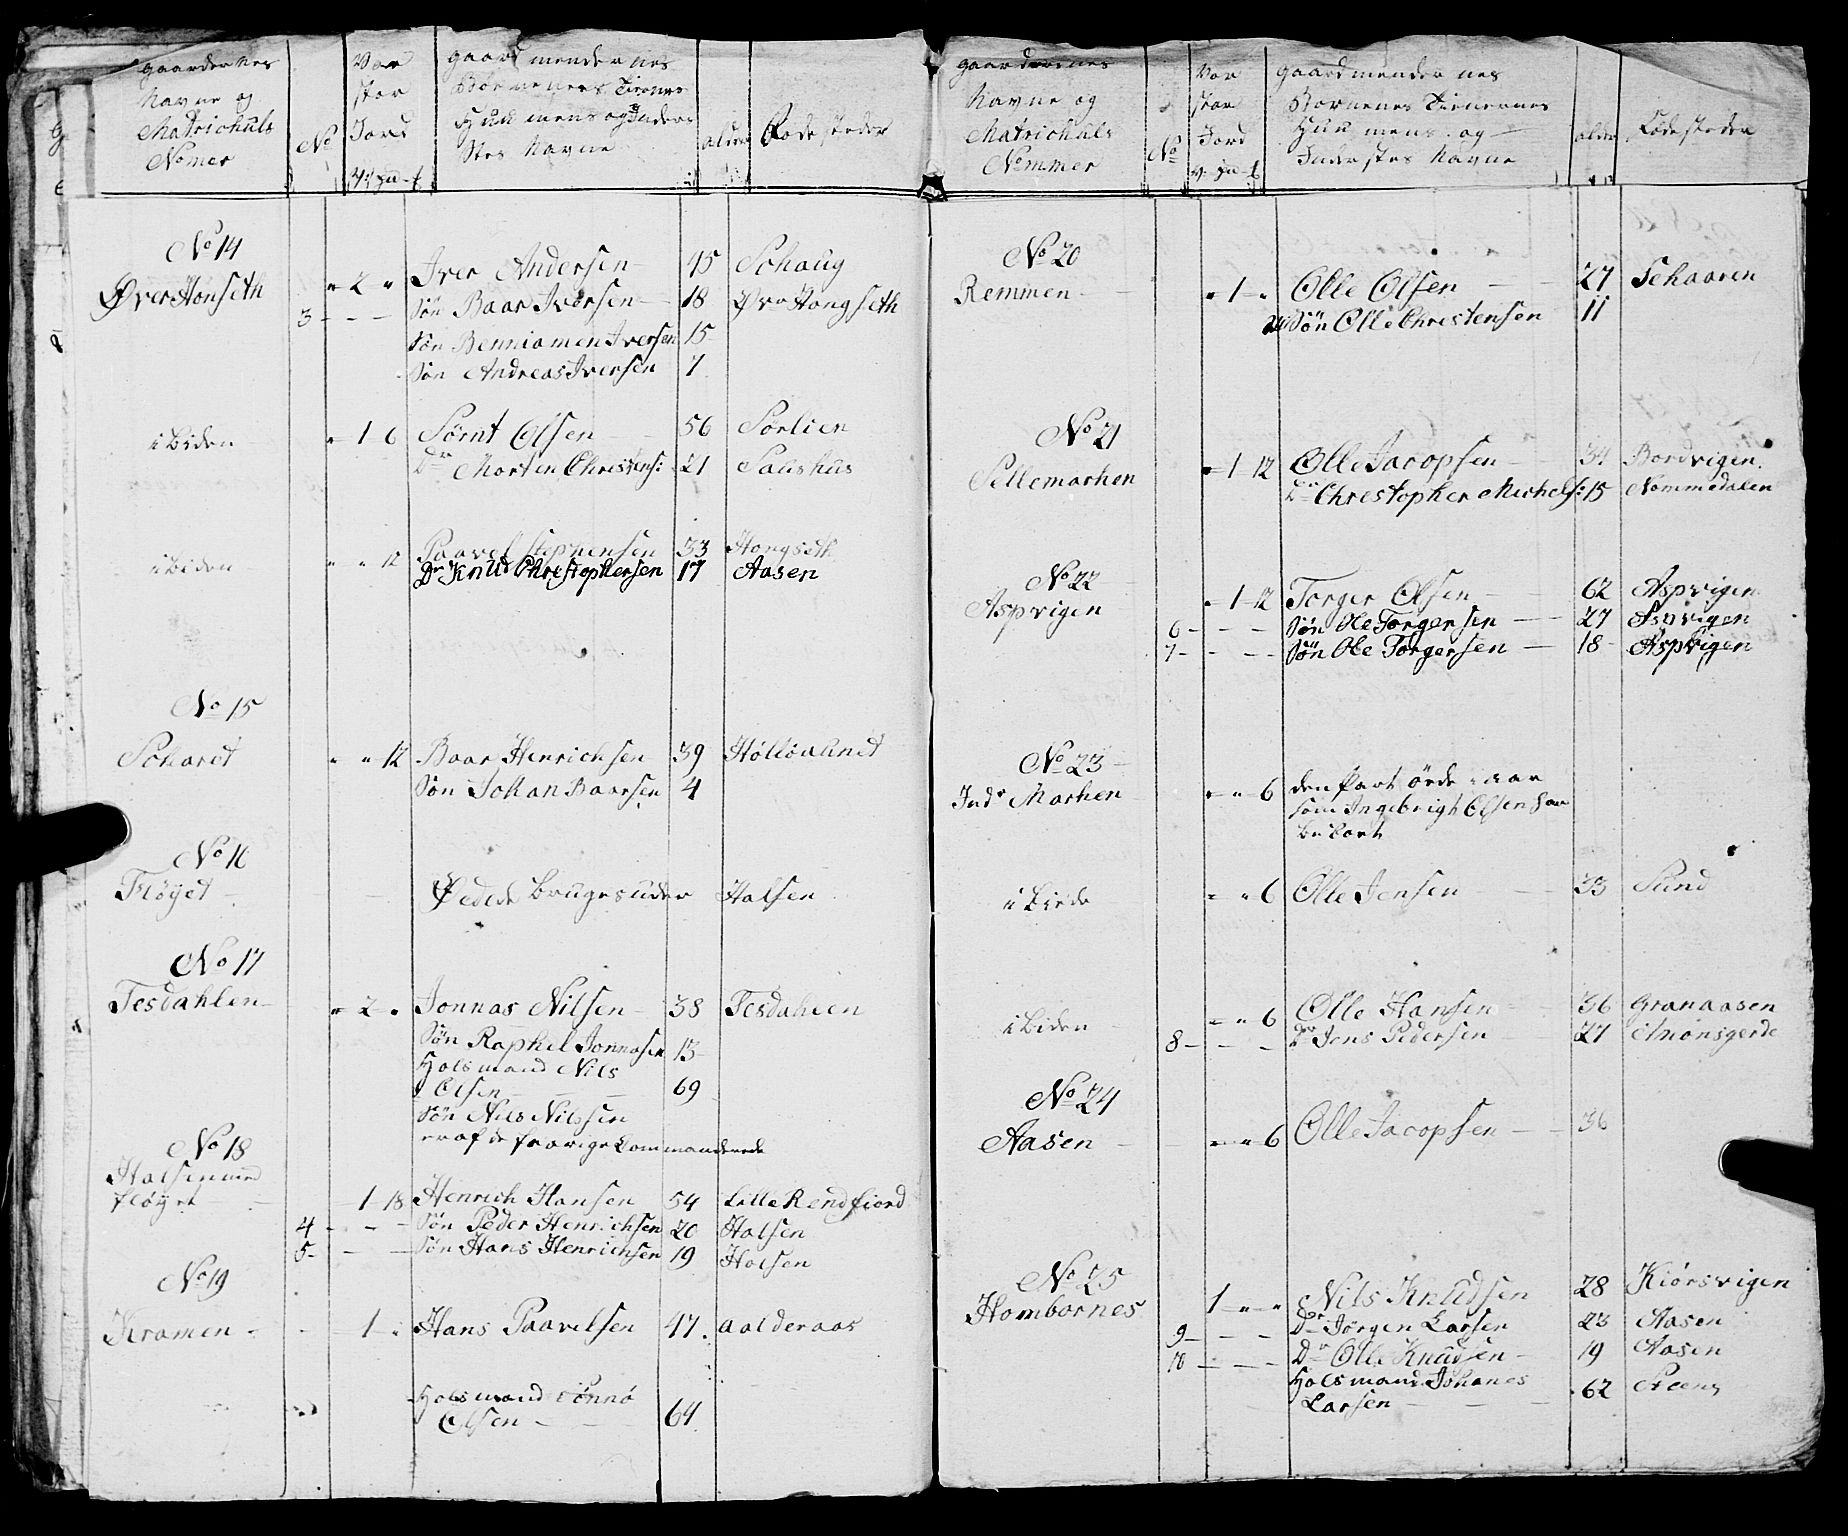 gaardernes Navne og Matrichuls Nomer
No
Vor stor Jord
V: pu - f
gaardmendernes Børneners Tienernes Huusmens og Inderstes Navne
alder
Fødesteder
No 14
Øver Honseth
" 2 " Iver Andersen 45 Schaug
3 - - - Søn Baar Iversen 18 Øvr Hongseth
Søn Benniamen Iversen 15
Søn Andreas Iversen 7
ibiden " 1 6 Sørnt Olsen 56 Sørlien
Dr Morten Christens: 21 Saushus
ibiden " " 12 Paavel Stephensen 33 Hongseth
Dr Knud Christophersen 17 Aasen
No 15
Schard " " 12 Baar Henrichsen 39
Søn Johan Baarsen 4
No 16
Fløyet Ødede bruges under Halsen
No 17
Tesdahlen " 2 " Jonnas Nilsen 38 Tesdahlen
Søn Raphel Jonnasen 13
Holsmand Nils
Olsen 69
Søn Nils Nilssen
er af de forrige Commanderede
No 18
Halsen med
fløyet 1 18 Henrich Hansen 54 Lille Rendfiord
4 - - - Søn Peder Henrichsen 20 Halsen
5 - - - Søn Hans Henrichsen 19 Halsen
No 19
Kramen 1 " Hans Paavelsen 47 Aalderaas
Holsmand Tønnø
Olsen 64
gaardernes Navne og Matrichuls Nommer
No
Vor stor Jord
v. pu - f
gaardmendernes Børnenes Tienernes Huusmens og Inderstes Navne
alder
Fødesteder
No 20
Remmen " 1 " Olle Olsen 27 Schaaren
Søn Olle Christensen 11
No 21
Sellemarken " 1 12 Olle Jacopsen 34 Bordvigen
Dr Christopher Michels: 15 Nommedalen
No 22
Aspvigen " 1 12 Torger Olsen 62 Aspvigen
6 - - - Søn Ole Torgersen 27 Aspvigen
7 - - - Søn Ole Torgersen 18 Aspvigen
No 23
Indr Marken " " 6 den Part øde er
som Ingebrigt Olsen har
beboet
ibide " " 6 Olle Jensen 33 Sund
ibiden " " 6 Olle Hansen 36 Granaasen
8 - - - Dr Jens Pedersen 27
No 24
Aasen " " 6 Olle Jacopsen 36
No 25
Hombornes 1 " " Nils Knudsen 28 Kiørsvigen
9 - - - Dr Jørgen Larsen 23 Aasen
10 - - - Dr Olle Knudsen 19 Aasen
Holsmand Johanes
Larsen 62